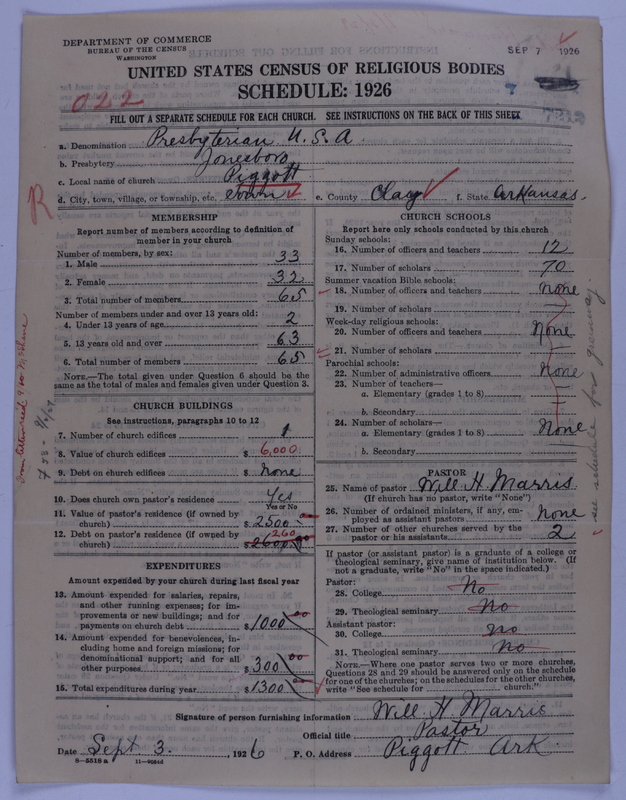 DEPARTMENT OF COMMERCE
BUREAU OF THE CENSUS
WASHINGTON
SEP 7 1926
UNITED STATES CENSUS OF RELIGIOUS BODIES
SCHEDULE: 1926
022
FILL OUT A SEPARATE SCHEDULE FOR EACH CHURCH. SEE INSTRUCTIONS ON THE BACK OF THIS SHEET
a. Denomination Presbyterian U.S.A.
b. Presbytery Jonesboro
c. Local name of church Piggott
d. City, town, village, or township, etc. town e. County Clay f. State Arkansas.
R
MEMBERSHIP
Report number of members according to definition of
member in your church
Number of members, by sex:
1. Male 33
2. Female 32
3. Total number of members 65
Number of members under and over 13 years old:
4. Under 13 years of age 2
5. 13 years old and over 63
6. Total number of members 65
NOTE.—The total given under Question 6 should be the
same as the total of males and females given under Question 3.
CHURCH BUILDINGS
See instructions, paragraphs 10 to 12
7. Number of church edifices 1
8. Value of church edifices $ 6,000
9. Debt on church edifices $ None
10. Does church own pastor's residence Yes
Yes or No
11. Value of pastor's residence (if owned by
church) $ 2500
12. Debt on pastor's residence (if owned by
church) $ 260
EXPENDITURES
Amount expended by your church during last fiscal year
13. Amount expended for salaries, repairs,
and other running expenses; for im-
provements or new buildings; and for
payments on church debt $ 1000 00
14. Amount expended for benevolences, in-
cluding home and foreign missions; for
denominational support; and for all
other purposes $ 300 00
15. Total expenditures during year $ 1300 00
CHURCH SCHOOLS
Report here only schools conducted by this church
Sunday schools:
16. Number of officers and teachers 12
17. Number of scholars 70
Summer vacation Bible schools:
18. Number of officers and teachers None
19. Number of scholars
Week-day religious schools:
20. Number of officers and teachers None
21. Number of scholars
Parochial schools:
22. Number of administrative officers None
23. Number of teachers—
a. Elementary (grades 1 to 8)
b. Secondary
24. Number of scholars—
a. Elementary (grades 1 to 8) None
b. Secondary
PASTOR
25. Name of pastor Will H. Marris
(If church has no pastor, write "None")
26. Number of ordained ministers, if any, em-
ployed as assistant pastors None
27. Number of other churches served by the
pastor or his assistants 2
If pastor (or assistant pastor) is a graduate of a college or
theological seminary, give name of institution below. (If
not a graduate, write "No" in the space indicated.)
Pastor:
28. College No
29. Theological seminary No
Assistant pastor:
30. College no
31. Theological seminary No
NOTE.—Where one pastor serves two or more churches,
Questions 28 and 29 should be answered only on the schedule
for one of the churches; on the schedules for the other churches,
write "See schedule for church."
see schedule for
Signature of person furnishing information Will H Marris
Official title Pastor
Date Sept 3. 1926 P. O. Address Piggott Ark.
8—5518 a 11—9084d